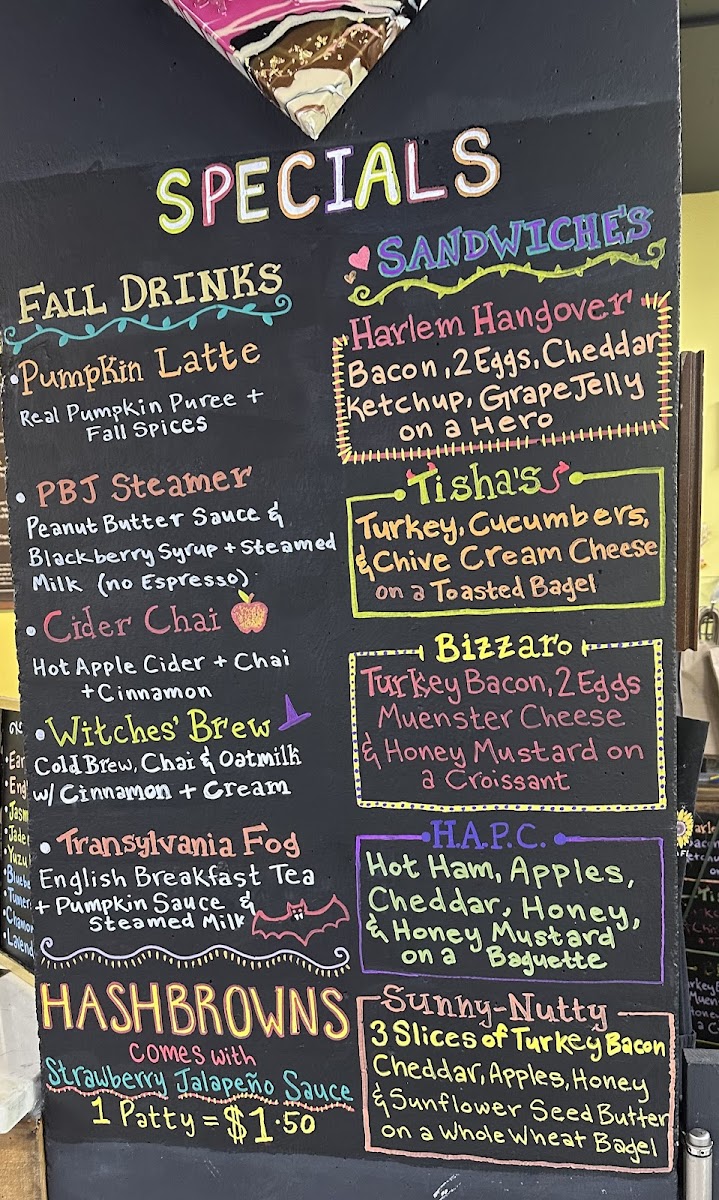 SPECIALS
FALL DRINKS
• Pumpkin Latte
Real Pumpkin Puree +
Fall Spices
• PBJ Steamer
Peanut Butter Sauce &
Blackberry Syrup + Steamed
Milk (no Espresso)
• Cider Chai
Hot Apple Cider + Chai
+ Cinnamon
• Witches' Brew
Cold Brew, Chai & Oatmilk
w/ Cinnamon + Cream
• Transylvania Fog
English Breakfast Tea
+ Pumpkin Sauce &
Steamed Milk
HASHBROWNS
comes with
Strawberry Jalapeño Sauce
1 Patty = $1.50
SANDWICHE'S
Harlem Hangover
Bacon, 2 Eggs, Cheddar
Ketchup, Grape Jelly
on a Hero
Tisha's
Turkey, Cucumbers,
& Chive Cream Cheese
on a Toasted Bagel
Bizzaro
Turkey Bacon, 2 Eggs
Muenster Cheese
& Honey Mustard on
a Croissant
H.A.P.C.
Hot Ham, Apples,
Cheddar, Honey,
& Honey Mustard
on a Baguette
Sunny-Nutty
3 Slices of Turkey Bacon
Cheddar, Apples, Honey
& Sunflower Seed Butter
on a Whole Wheat Bagel